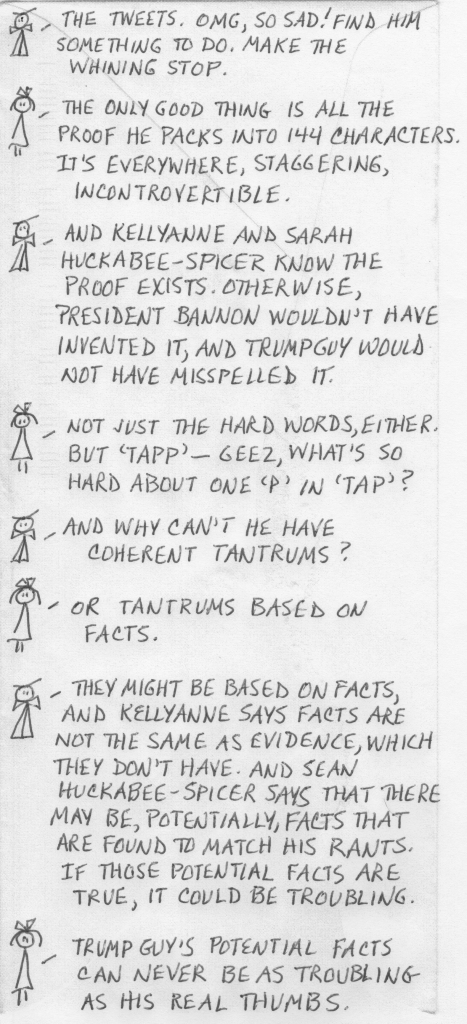 THE TWEETS. OMG, SO SAD! FIND HIM
SOMETHING TO DO. MAKE THE
WHINING STOP.
THE ONLY GOOD THING IS ALL THE
PROOF HE PACKS INTO 144 CHARACTERS.
IT'S EVERYWHERE, STAGGERING,
INCONTROVERTIBLE.
AND KELLYANNE AND SARAH
HUCKABEE-SPICER KNOW THE
PROOF EXISTS. OTHERWISE,
PRESIDENT BANNON WOULDN'T HAVE
INVENTED IT, AND TRUMPGUY WOULD
NOT HAVE MISSPELLED IT.
NOT JUST THE HARD WORDS, EITHER.
BUT 'TAPP' – GEEZ, WHAT'S SO
HARD ABOUT ONE 'P' IN 'TAP'?
AND WHY CAN'T HE HAVE
COHERENT TANTRUMS?
OR TANTRUMS BASED ON
FACTS.
THEY MIGHT BE BASED ON FACTS,
AND KELLYANNE SAYS FACTS ARE
NOT THE SAME AS EVIDENCE, WHICH
THEY DON'T HAVE. AND SEAN
HUCKABEE-SPICER SAYS THAT THERE
MAY BE, POTENTIALLY, FACTS THAT
ARE FOUND TO MATCH HIS RANTS.
IF THOSE POTENTIAL FACTS ARE
TRUE, IT COULD BE TROUBLING.
TRUMP GUY'S POTENTIAL FACTS
CAN NEVER BE AS TROUBLING
AS HIS REAL THUMBS.